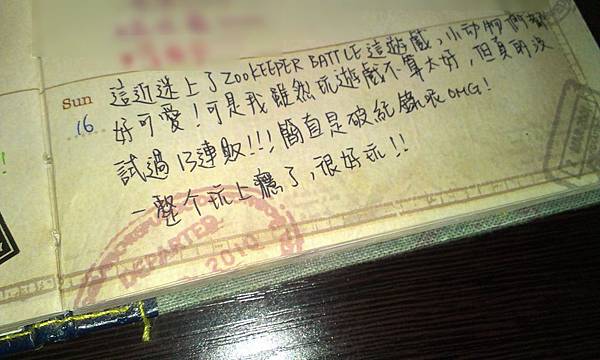 Sun
16
這近迷上了ZOOKEEPER BATTLE這遊戲,小动物們都
好可愛!可是我雖然玩遊戲不算太好,但真的沒
試過13連敗!!!簡直是破紀錄呢OMG!
一整个玩上癮了,很好玩!!
DEPARTED
2010